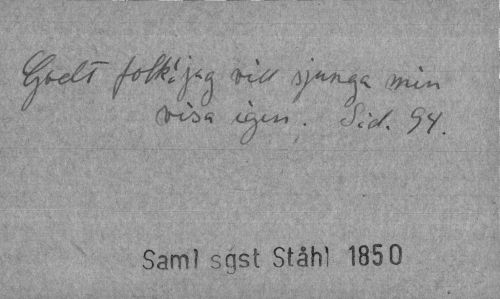 Godt folk! jag vill sjunga min
visa igen. Sid. 94.
Saml sgst Ståhl 1850